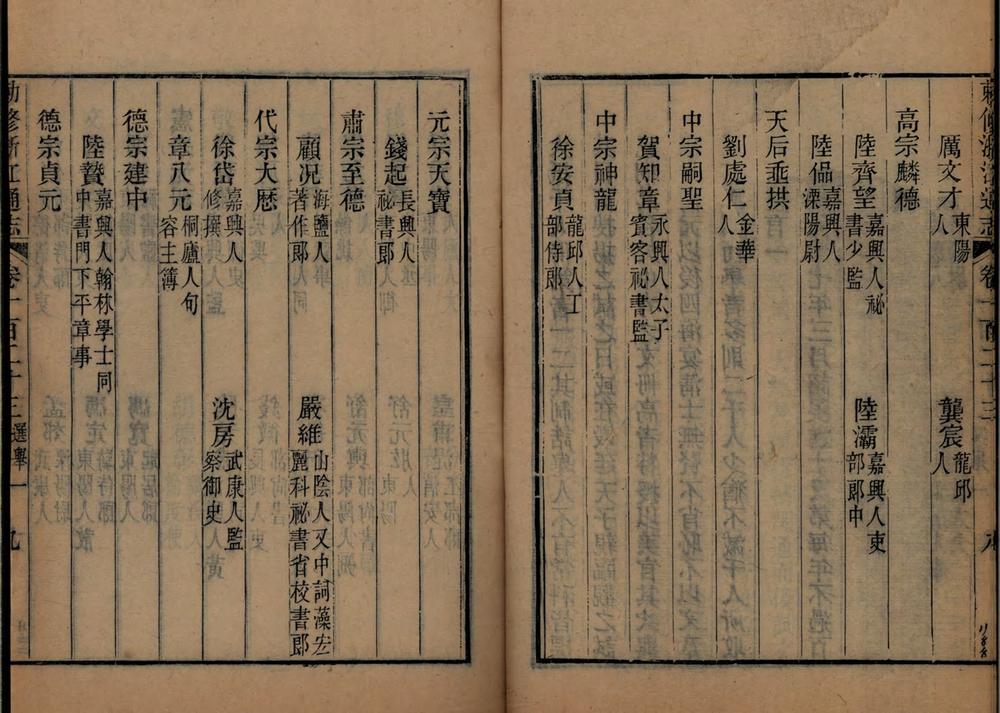 敕修浙江通志 卷一百二十三 八
厲文才東陽人 龔宸龍邱人
高宗麟德
陸齊望嘉興人祕書少監 陸灞嘉興人吏部郎中
陸偘嘉興人溧陽尉
天后垂拱
劉處仁金華人
中宗嗣聖
賀知章永興人太子賓客祕書監
中宗神龍
徐安貞龍邱人工部侍郎
元宗天寶
錢起長興人祕書郎
肅宗至德
顧况海鹽人著作郎 嚴維山陰人又中詞藻宏麗科祕書省校書郎
代宗大厯
徐岱嘉興人修撰 沈房武康人監察御史
章八元桐廬人句容主簿
德宗建中
陸贄嘉興人翰林學士同中書門下平章事
德宗貞元
勅修浙江通志 卷一百二十三 選舉一 九